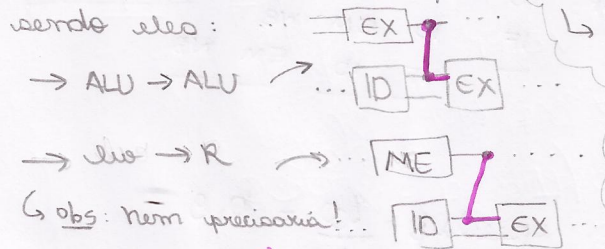 sendo eles: ... EX ...
→ ALU → ALU ... ID EX ...
→ lw → R ... ME ...
↳ obs: nem precisaria! ... ID EX ...